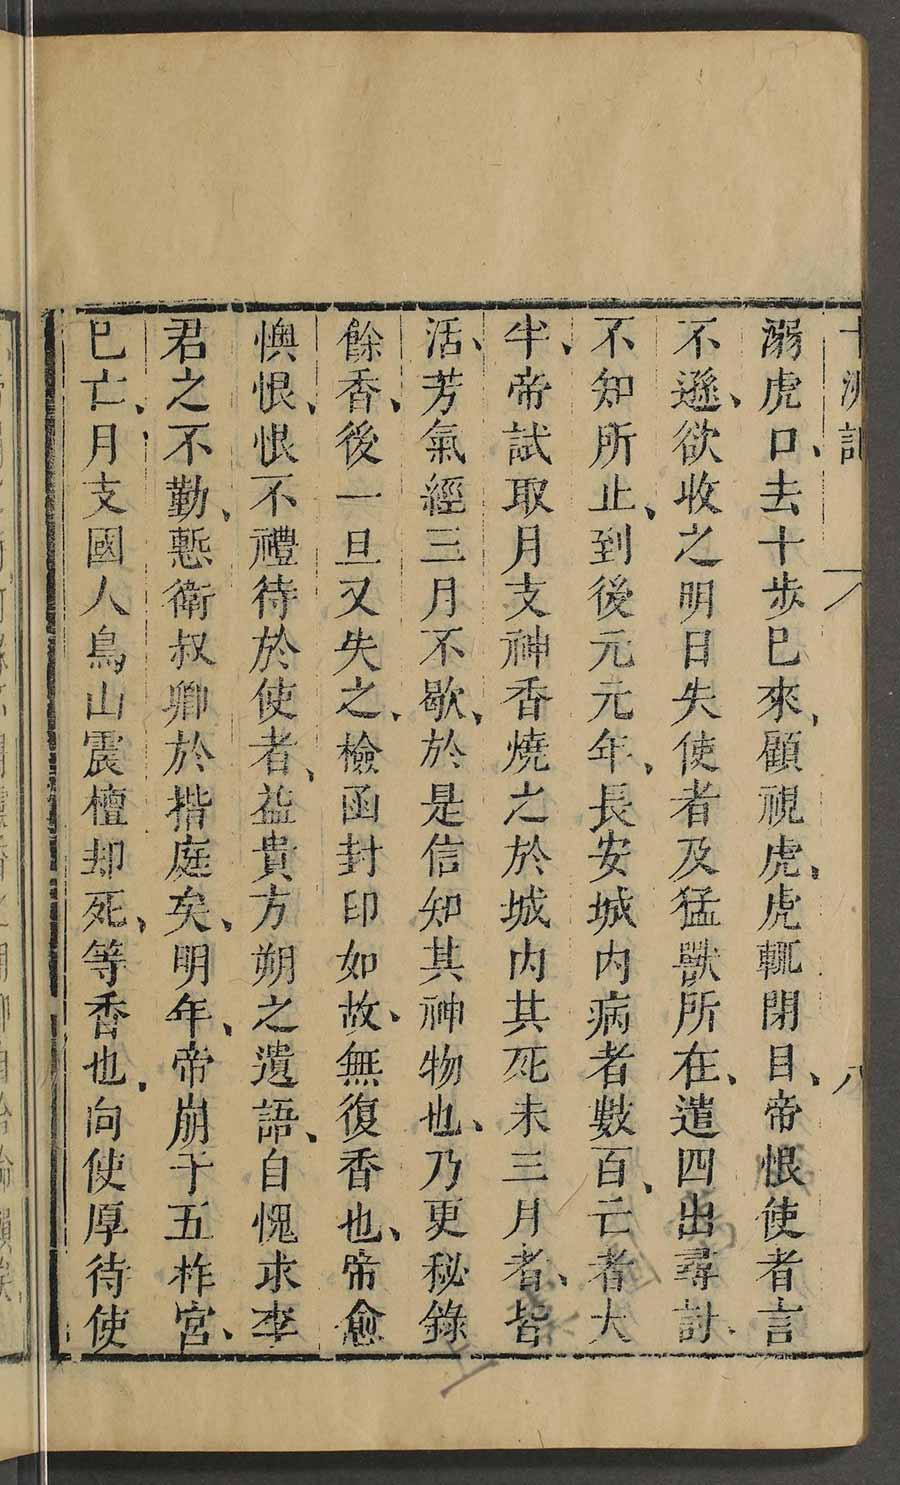 十洲記　八
溺虎口、去十步已來、顧視虎、虎輒閉目、帝恨使者言
不遜、欲收之明日失使者及猛獸所在、遣四出尋討、
不知所止、到後元元年、長安城內病者數百、亡者大
半、帝試取月支神香燒之於城內其死未三月者、皆
活、芳氣經三月不歇、於是信知其神物也、乃更秘錄
餘香、後一旦又失之、檢函封印如故、無復香也、帝愈
懊恨、恨不禮待於使者、益貴方朔之遺語、自愧求李
君之不勤、慙衛叔卿於揩庭矣、明年、帝崩于五柞宮、
已亡、月支國人鳥山震檀却死、等香也、向使厚待使